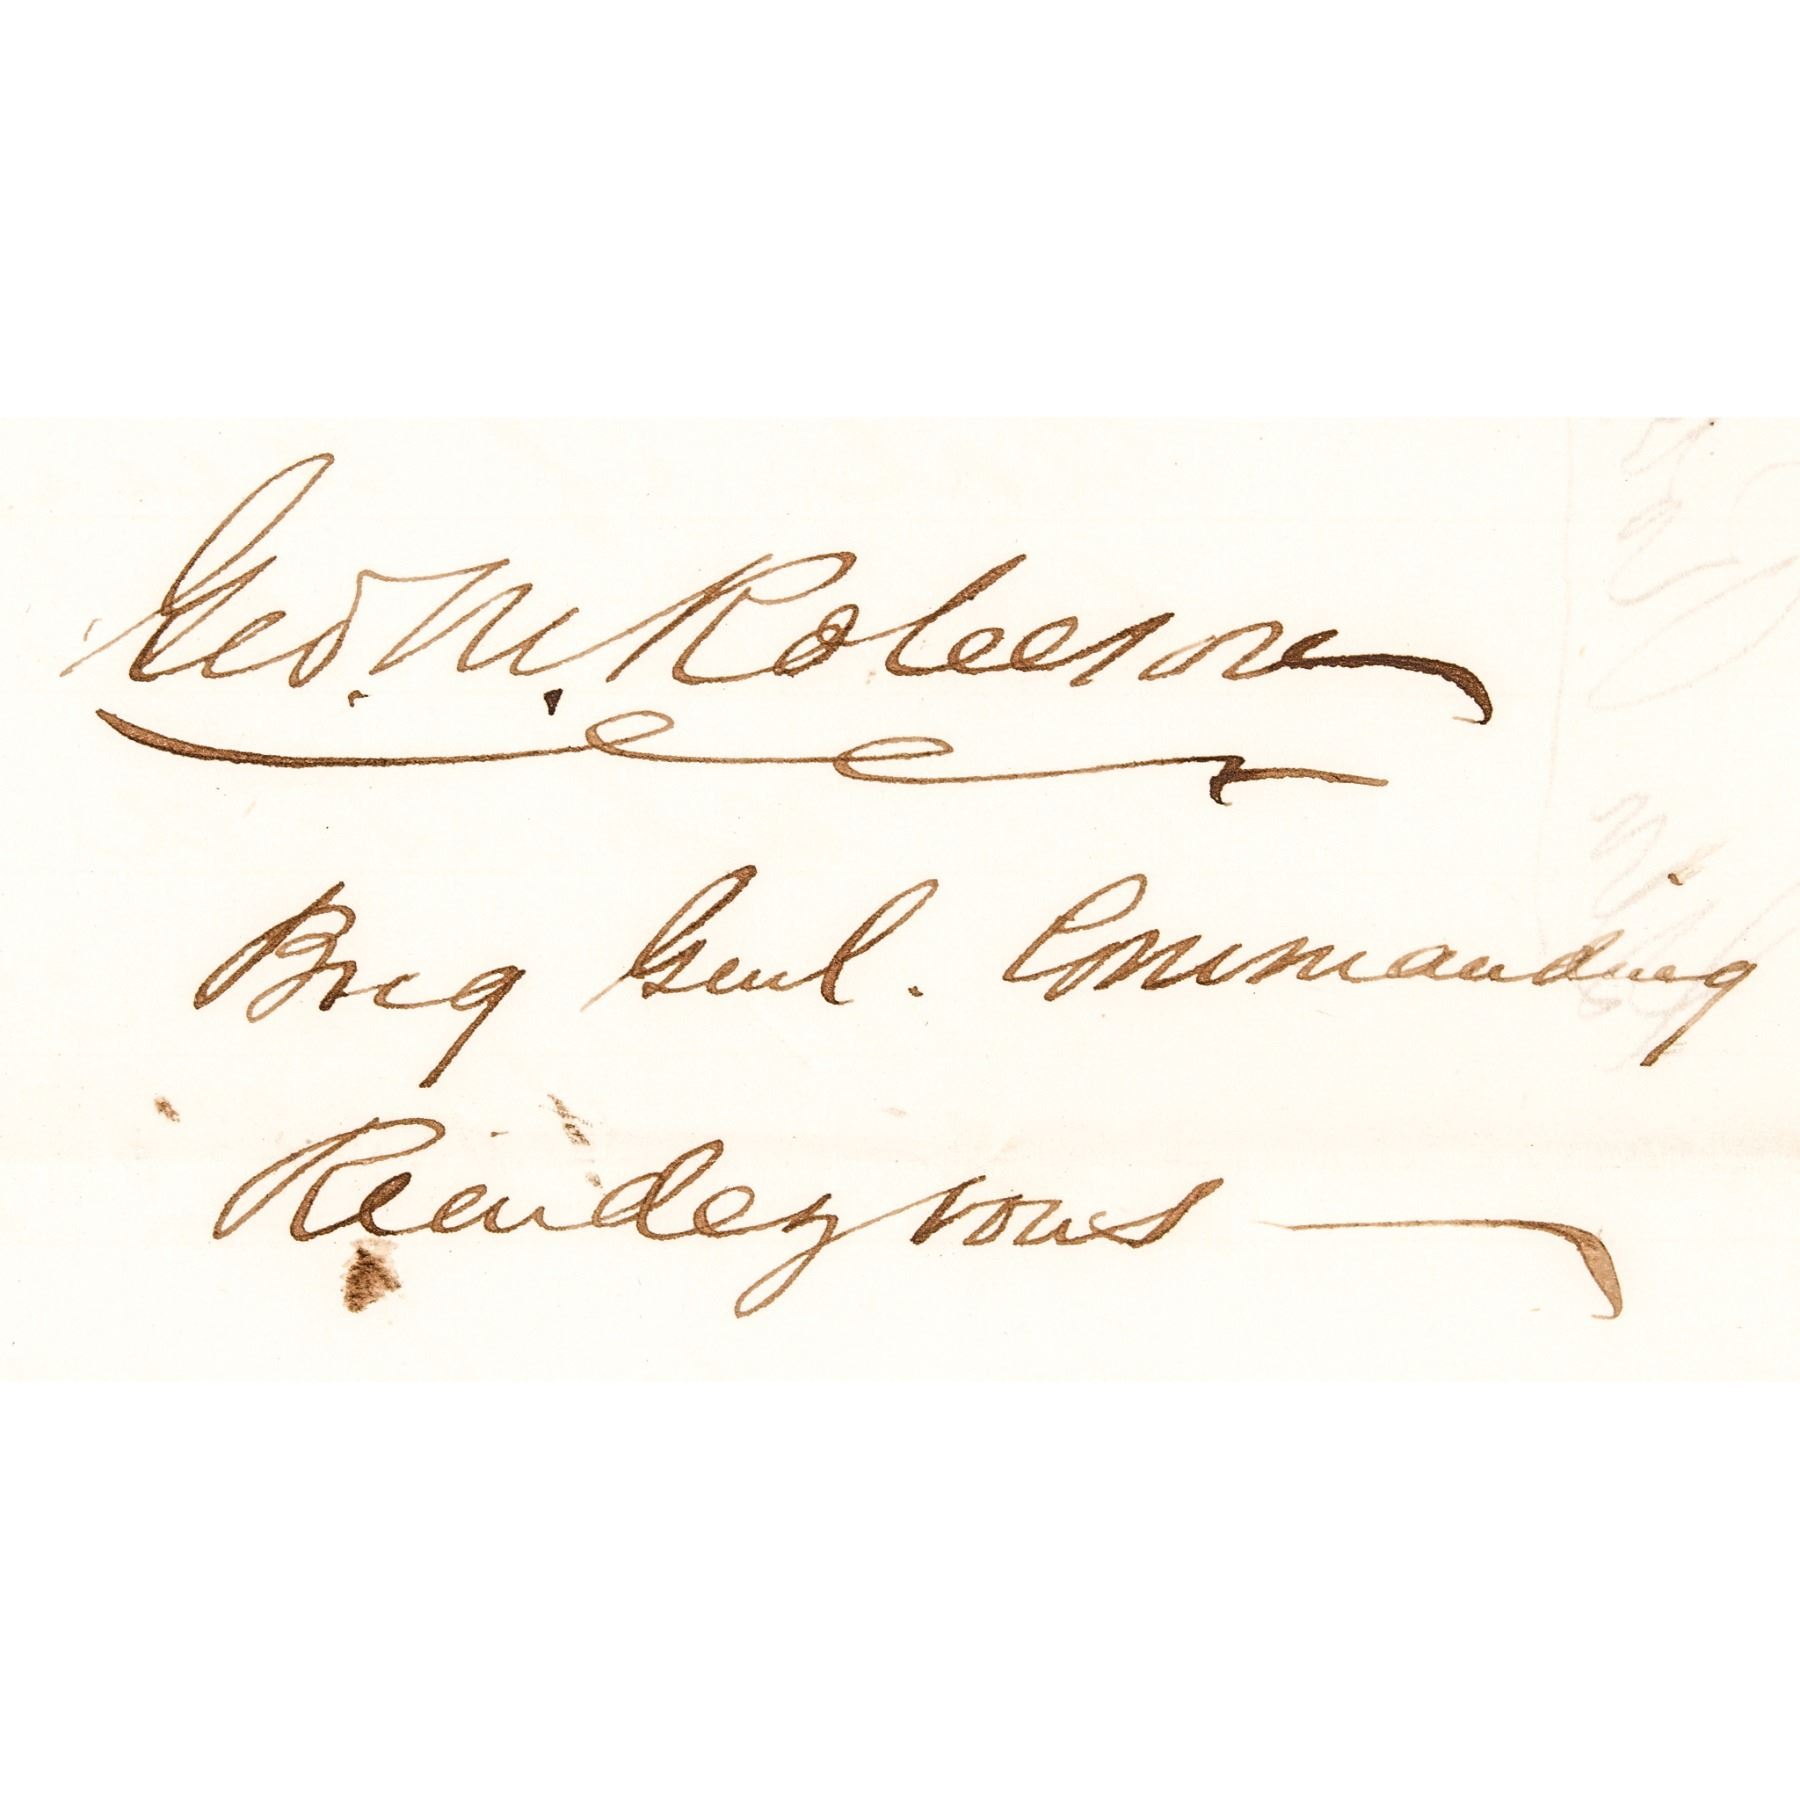 Geo. M. Robeson
Brig Genl. Commanding
Rendezvous